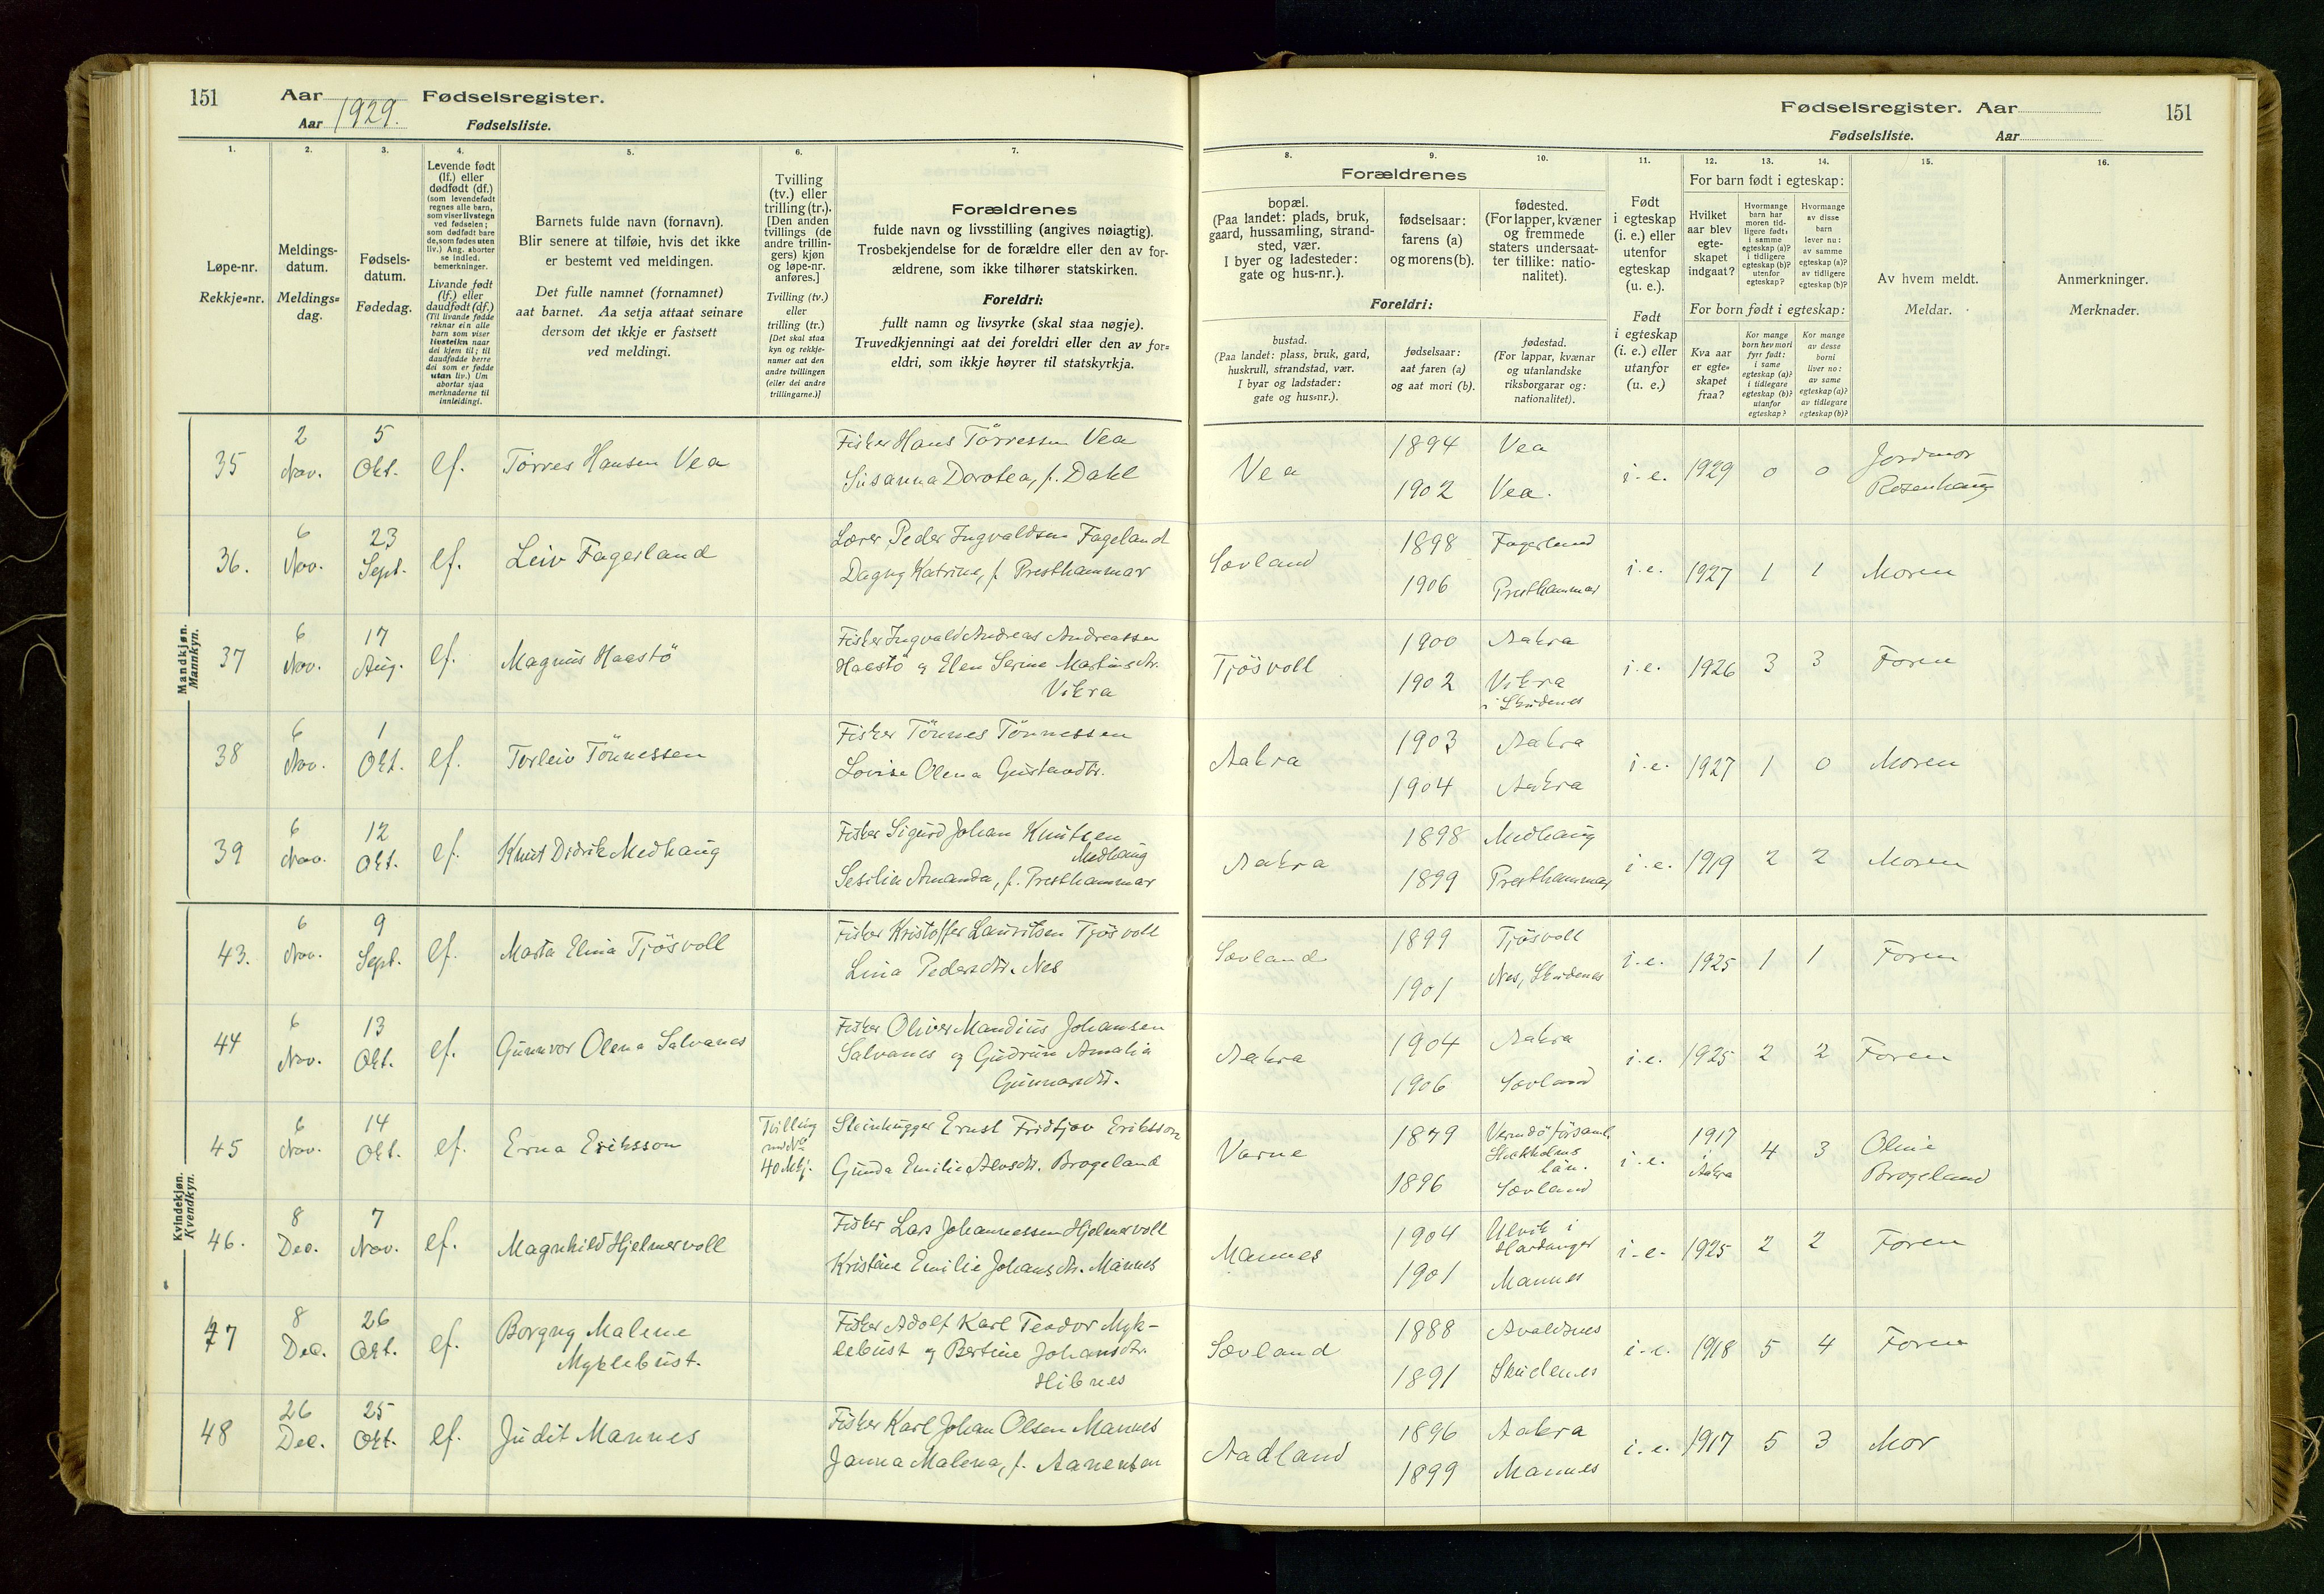 151
Aar
Fødselsregister.
Aar 1929.
Fødselsliste.
1.
2.
3.
4.
5.
6.
7.
Løpe-nr.
Rekkje-nr.
Meldings-
datum.
Meldings-
dag.
Fødsels-
datum.
Fødedag.
Levende født
(lf.) eller
dødfødt (df.)
(som levendefødt
regnes alle barn,
som viser livstegn
ved fødselen;
som dødfødt bare
de, som fødes uten
liv.) Ang. aborter
se indled.
bemerkninger.
Livande født
(lf.) eller
daudfødt (df.)
(Til livande fødde
reknar ein alle
barn som viser
livsteikn naar
dei kjem til; til
daudfødde berre
dei som er fødde
utan liv.) Um
abortar sjaa
merknaderne til
innleidingi.
Barnets fulde navn (fornavn).
Blir senere at tilføie, hvis det ikke
er bestemt ved meldingen.
Det fulle namnet (fornamnet)
aat barnet. Aa setja attaat seinare
dersom det ikkje er fastsett
ved meldingi.
Tvilling
(tv.) eller
trilling (tr.).
[Den anden
tvillings (de
andre trillin-
gers) kjøn
og løpe-nr.
anføres.]
Tvilling (tv.)
eller
trilling (tr.)
[Det skal staa
kyn og rekkje-
numer aat den
andre tvillingen
(eller dei andre
trillingarne.)]
Forældrenes
fulde navn og livsstilling (angives nøiagtig).
Trosbekjendelse for de forældre eller den av for-
ældrene, som ikke tilhører statskirken.
Foreldri:
fullt namn og livsyrke (skal staa nøgje).
Truvedkjenningi aat dei foreldri eller den av for-
eldri, som ikkje høyrer til statskyrkja.
Mandkjøn.
Mannkyn.
35
2
Nov.
5
Okt.
lf.
Tørres Hansen Vea
Fisker Hans Tørressen Vea
Susanna Dorotea, f. Dahl
36.
6
Nov.
23
Sept.
lf.
Leiv Fagerland
Lærer Peder Ingvaldsen Fageland
Dagny Katrine, f. Presthammar
37
6
Nov.
17
Aug.
lf.
Magnus Haastö
Fisker Ingvald Andreas Andreassen
Haastö og Elen Serine Martinsdtr.
Vikra
38
6
Nov.
1
Okt.
lf.
Torleiv Tönnessen
Fisker Tönnes Tönnessen
Lovise Olena Gustavdtr.
39
6
Nov.
12
Okt.
lf.
Knut Didrik Medhaug
Fisker Sigurd Johan Knutsen
Medhaug
Sesilie Amanda, f. Presthammar
Kvindekjøn.
Kvendkyn.
43.
6
Nov.
9
Sept.
lf.
Marta Elina Tjösvoll
Fisker Kristoffer Lauritsen Tjösvoll
Lina Pedersdtr. Nes
44
6
Nov.
13
Okt.
lf.
Gunnvor Olena Salvanes
Fisker Oliver Mandius Johansen
Salvanes og Gudrun Amalia
Gunnarsdtr.
45
6
Nov.
14
Okt.
lf.
Erna Eriksson
Tvilling
med
40 Mkj.
Steinhugger Ernst Fridtjov Eriksson
Gunda Emilie Aensdtr. Brogeland
46.
8
Dec.
7
Nov.
lf.
Magnhild Hjelmervoll
Fisker Lars Johannessen Hjelmervoll
Kristine Emilie Johansdtr. Mannes
47
8
Dec.
26
Okt.
lf.
Borgny Malene
Myklebust.
Fisker Adolf Karl Teodor Myk-
lebust og Bertine Johansdtr.
Hibnes
48
26
Dec.
25
Okt.
lf.
Judit Mannes
Fisker Karl Johan Olsen Mannes
Janna Malena, f. Aanensen
Fødselsregister. Aar
151
Fødselsliste.
Aar
8.
9.
10.
11.
12.
13.
14.
15.
16.
Forældrenes
bopæl.
(Paa landet: plads, bruk,
gaard, hussamling, strand-
sted, vær.
I byer og ladesteder:
gate og hus-nr.).
fødselsaar:
farens (a)
og morens (b).
fødested.
(For lapper, kvæner
og fremmede
staters undersaat-
ter tillike: natio-
nalitet).
Foreldri:
bustad.
(Paa landet: plass, bruk, gard,
huskrull, strandstad, vær.
I byar og ladstader:
gate og hus-nr.).
fødselsaar:
aat faren (a)
og aat mori (b).
fødestad.
(For lappar, kvænar
og utanlandske
riksborgarar og:
nationalitet).
Født
i egteskap
(i. e.) eller
utenfor
egteskap
(u. e.).
Født
i egteskap
(i. e.) eller
utanfor
(u. e.)
For barn født i egteskap:
Hvilket
aar blev
egte-
skapet
indgaat?
Hvormange
barn har
moren tid-
ligere født:
i samme
egteskap (a)?
i tidligere
egteskap (b)?
utenfor
egteskap?
Hvormange
av disse
barn
lever nu:
av samme
egteskap (a)?
av tidligere
egteskap (b)?
For born født i egteskap:
Kva aar
er egte-
skapet
fraa?
Kor mange
born hev mori
fyrr født:
i same
egteskap (a)?
i tidlegare
egteskap (b)?
utanfor
egteskap?
Kor mange
av desse
borni
liver no:
av same
egteskap (a)?
av tidlegare
egteskap (b)?
Av hvem meldt.
Meldar.
Anmerkninger.
Merknader.
Vea
1894
1902
Vea
Vea.
i. e.
1929
0
0
Jordmor
Rosenhaug
Sævland
1898
1906
Fagerland
Presthammar
i. e.
1927
1
1
Moren
Tjösvoll
1900
1902
Aakra
Vikra
i Skudenes
i. e.
1926
3
3
Faren
Aakra
1903
1904
Aakra
Aakra
i. e.
1927
1
0
Moren
Aakra
1898
1899
Medhaug
Presthammar
i. e.
1919
2
2
Moren
Sævland
1899
1901
Tjösvoll
Nes, Skudenes
i. e.
1925
1
1
Faren
Aakra
1904
1906
Aakra
Sævland
i. e.
1925
2
2
Faren
Varne
1879
1896
Vermdö församl.
Stockholms
län.
Sævland
i. e.
1917
i Aakra
4
3
Oline
Brogeland
Mannes
1904
1901
Ulvik i
Hardanger
Mannes
i. e.
1925
2
2
Faren
Sævland
1888
1891
Avaldsnes
Skudenes
i. e.
1918
5
4
Faren
Aadland
1896
1899
Aakra
Mannes
i. e.
1917
5
3
Mor